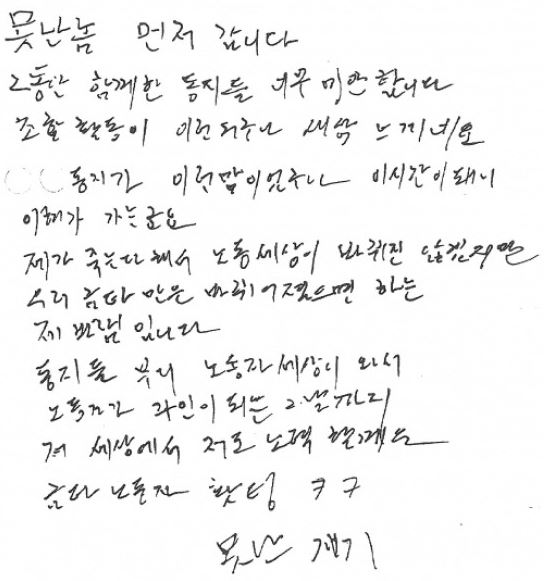 못난놈 먼저 갑니다
그동안 함께한 동지들 너무 미안합니다
조합활동이 이런거구나 새삼 느끼네요
○○동지가 이런맘이었구나 이시간이돼니
이해가 가는군요
제가 죽는다해서 노동세상이 바뀌진 않겠지만
우리 금타 만은 바뀌어졌으면 하는
제 바램 입니다
동지들 부디 노동자세상이 와서
노동자가 주인이 되는 그날까지
저 세상에서 저도 노력 할께요
금타 노동자 홧팅 ㅋㅋ
못난